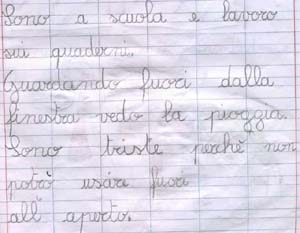 Sono a scuola e lavoro
sui quaderni.
Guardando fuori dalla
finestra vedo la pioggia.
Sono triste perchè non
potrò usári fuori
all' aperto.